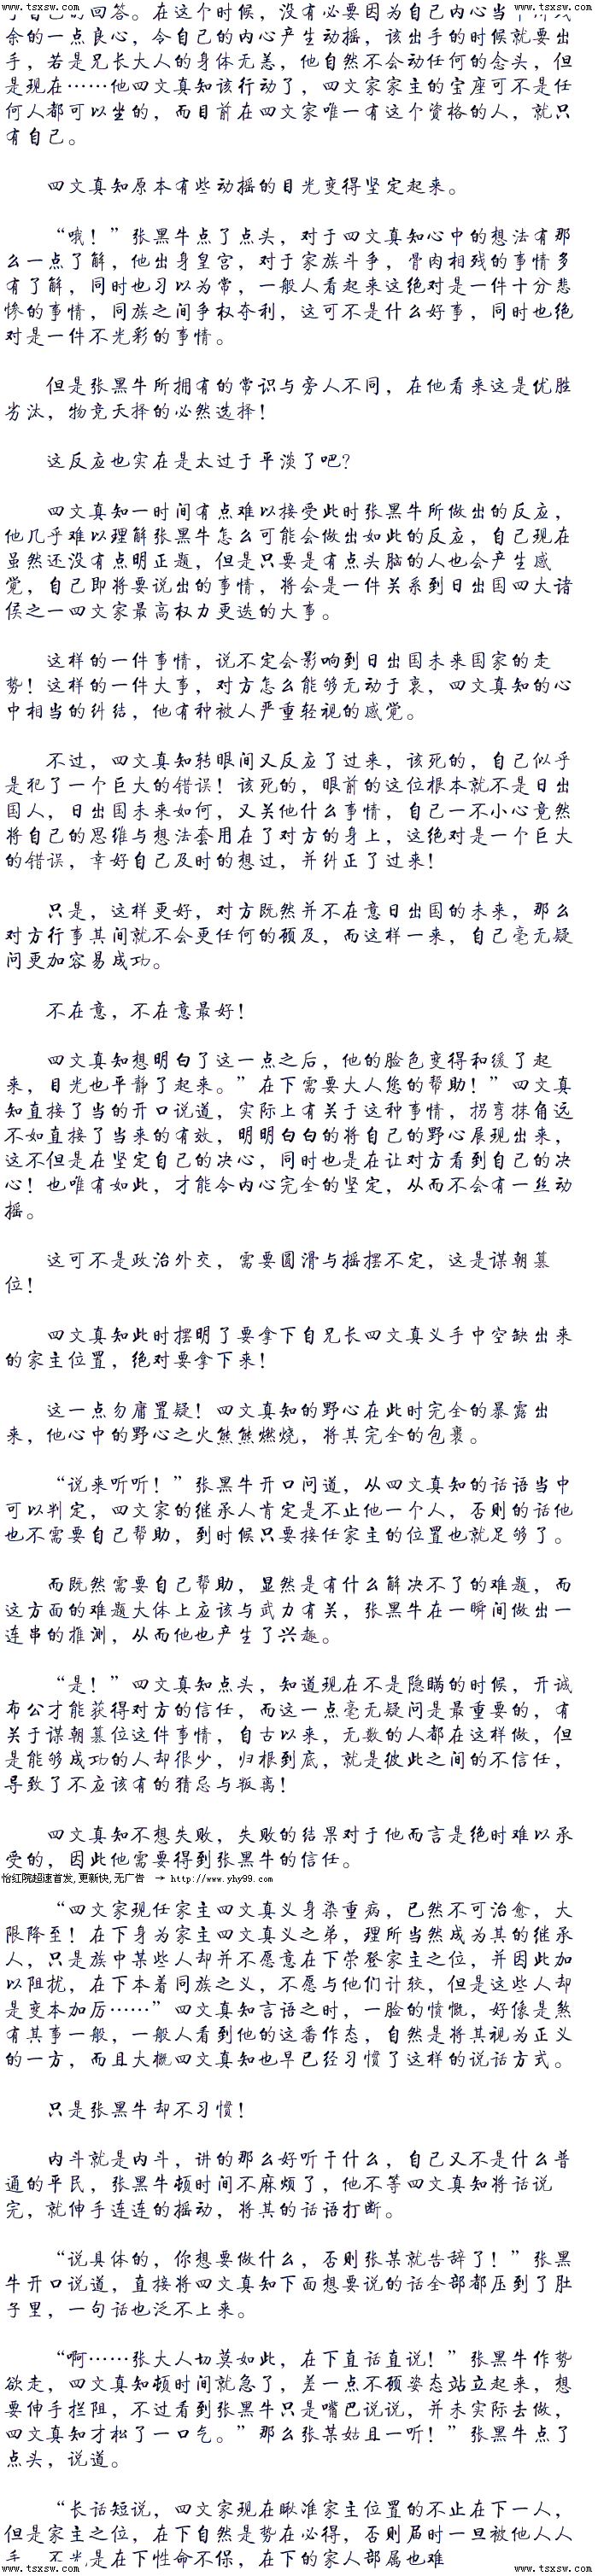 www.tsxsw.com www.tsxsw.com www.tsxsw.com
了自己的回答。在这个时候，没有必要因为自己内心当中所残
余的一点良心，令自己的内心产生动摇，该出手的时候就要出
手，若是兄长大人的身体无恙，他自然不会动任何的念头，但
是现在……他四文真知该行动了，四文家家主的宝座可不是任
何人都可以坐的，而目前在四文家唯一有这个资格的人，就只
有自己。
四文真知原本有些动摇的目光变得坚定起来。
“哦！”张黑牛点了点头，对于四文真知心中的想法有那
么一点了解，他出身皇宫，对于家族斗争，骨肉相残的事情多
有了解，同时也习以为常，一般人看起来这绝对是一件十分悲
惨的事情，同族之间争权夺利，这可不是什么好事，同时也绝
对是一件不光彩的事情。
但是张黑牛所拥有的常识与旁人不同，在他看来这是优胜
劣汰，物竞天择的必然选择！
这反应也实在是太过于平淡了吧？
四文真知一时间有点难以接受此时张黑牛所做出的反应，
他几乎难以理解张黑牛怎么可能会做出如此的反应，自己现在
虽然还没有点明正题，但是只要是有点头脑的人也会产生感
觉，自己即将要说出的事情，将会是一件关系到日出国四大诸
侯之一四文家最高权力更迭的大事。
这样的一件事情，说不定会影响到日出国未来国家的走
势！这样的一件大事，对方怎么能够无动于衷，四文真知的心
中相当的纠结，他有种被人严重轻视的感觉。
不过，四文真知转眼间又反应了过来，该死的，自己似乎
是犯了一个巨大的错误！该死的，眼前的这位根本就不是日出
国人，日出国未来如何，又关他什么事情，自己一不小心竟然
将自己的思维与想法套用在了对方的身上，这绝对是一个巨大
的错误，幸好自己及时的想过，并纠正了过来！
只是，这样更好，对方既然并不在意日出国的未来，那么
对方行事其间就不会更任何的顾及，而这样一来，自己毫无疑
问更加容易成功。
不在意，不在意最好！
四文真知想明白了这一点之后，他的脸色变得和缓了起
来，目光也平静了起来。”在下需要大人您的帮助！”四文真
知直接了当的开口说道，实际上有关于这种事情，拐弯抹角远
不如直接了当来的有效，明明白白的将自己的野心展现出来，
这不但是在坚定自己的决心，同时也是在让对方看到自己的决
心！也唯有如此，才能令内心完全的坚定，从而不会有一丝动
摇。
这可不是政治外交，需要圆滑与摇摆不定，这是谋朝篡
位！
四文真知此时摆明了要拿下自兄长四文真义手中空缺出来
的家主位置，绝对要拿下来！
这一点勿庸置疑！四文真知的野心在此时完全的暴露出
来，他心中的野心之火熊熊燃烧，将其完全的包裹。
“说来听听！”张黑牛开口问道，从四文真知的话语当中
可以判定，四文家的继承人肯定是不止他一个人，否则的话他
也不需要自己帮助，到时候只要接任家主的位置也就足够了。
而既然需要自己帮助，显然是有什么解决不了的难题，而
这方面的难题大体上应该与武力有关，张黑牛在一瞬间做出一
连串的推测，从而他也产生了兴趣。
“是！”四文真知点头，知道现在不是隐瞒的时候，开诚
布公才能获得对方的信任，而这一点毫无疑问是最重要的，有
关于谋朝篡位这件事情，自古以来，无数的人都在这样做，但
是能够成功的人却很少，归根到底，就是彼此之间的不信任，
导致了不应该有的猜忌与叛离！
四文真知不想失败，失败的结果对于他而言是绝时难以承
受的，因此他需要得到张黑牛的信任。
怡红院超速首发,更新快,无广告 → http://www.yhy99.com
“四文家现任家主四文真义身染重病，已然不可治愈，大
限降至！在下身为家主四文真义之弟，理所当然成为其的继承
人，只是族中某些人却并不愿意在下荣登家主之位，并因此加
以阻扰，在下本着同族之义，不愿与他们计较，但是这些人却
是变本加厉……”四文真知言语之时，一脸的愤慨，好像是煞
有其事一般，一般人看到他的这番作态，自然是将其视为正义
的一方，而且大概四文真知也早已经习惯了这样的说话方式。
只是张黑牛却不习惯！
内斗就是内斗，讲的那么好听干什么，自己又不是什么普
通的平民，张黑牛顿时间不麻烦了，他不等四文真知将话说
完，就伸手连连的摇动，将其的话语打断。
“说具体的，你想要做什么，否则张某就告辞了！”张黑
牛开口说道，直接将四文真知下面想要说的话全部都压到了肚
子里，一句话也泛不上来。
“啊……张大人切莫如此，在下直话直说！”张黑牛作势
欲走，四文真知顿时间就急了，差一点不顾姿态站立起来，想
要伸手拦阻，不过看到张黑牛只是嘴巴说说，并未实际去做，
四文真知才松了一口气。”那么张某姑且一听！”张黑牛点了
点头，说道。
“长话短说，四文家现在瞅准家主位置的不止在下一人，
但是家主之位，在下自然是势在必得，否则届时一旦被他人入
手，不光是在下性命不保，在下的家人部属也难
www.tsxsw.com www.tsxsw.com www.tsxsw.com